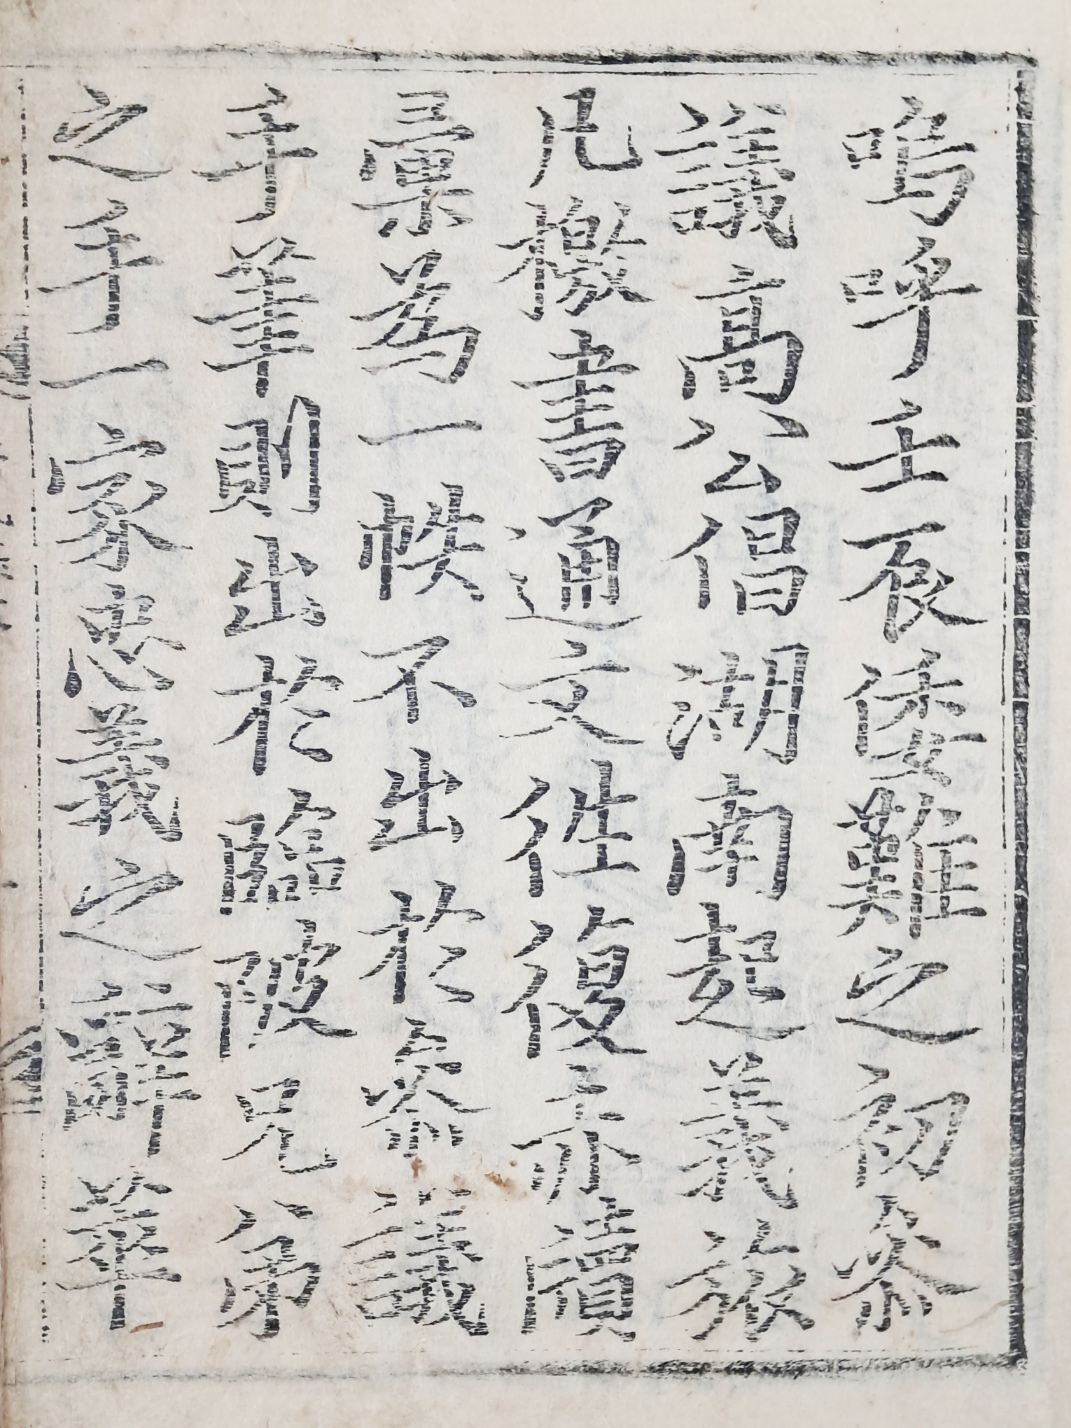 嗚呼壬辰倭難之初參
議高公倡湖南起義旅
凡檄書通文往復赤牘
彙爲一帙不出於參議
手筆則出於臨陂兄弟
之手一家忠義之辭萃